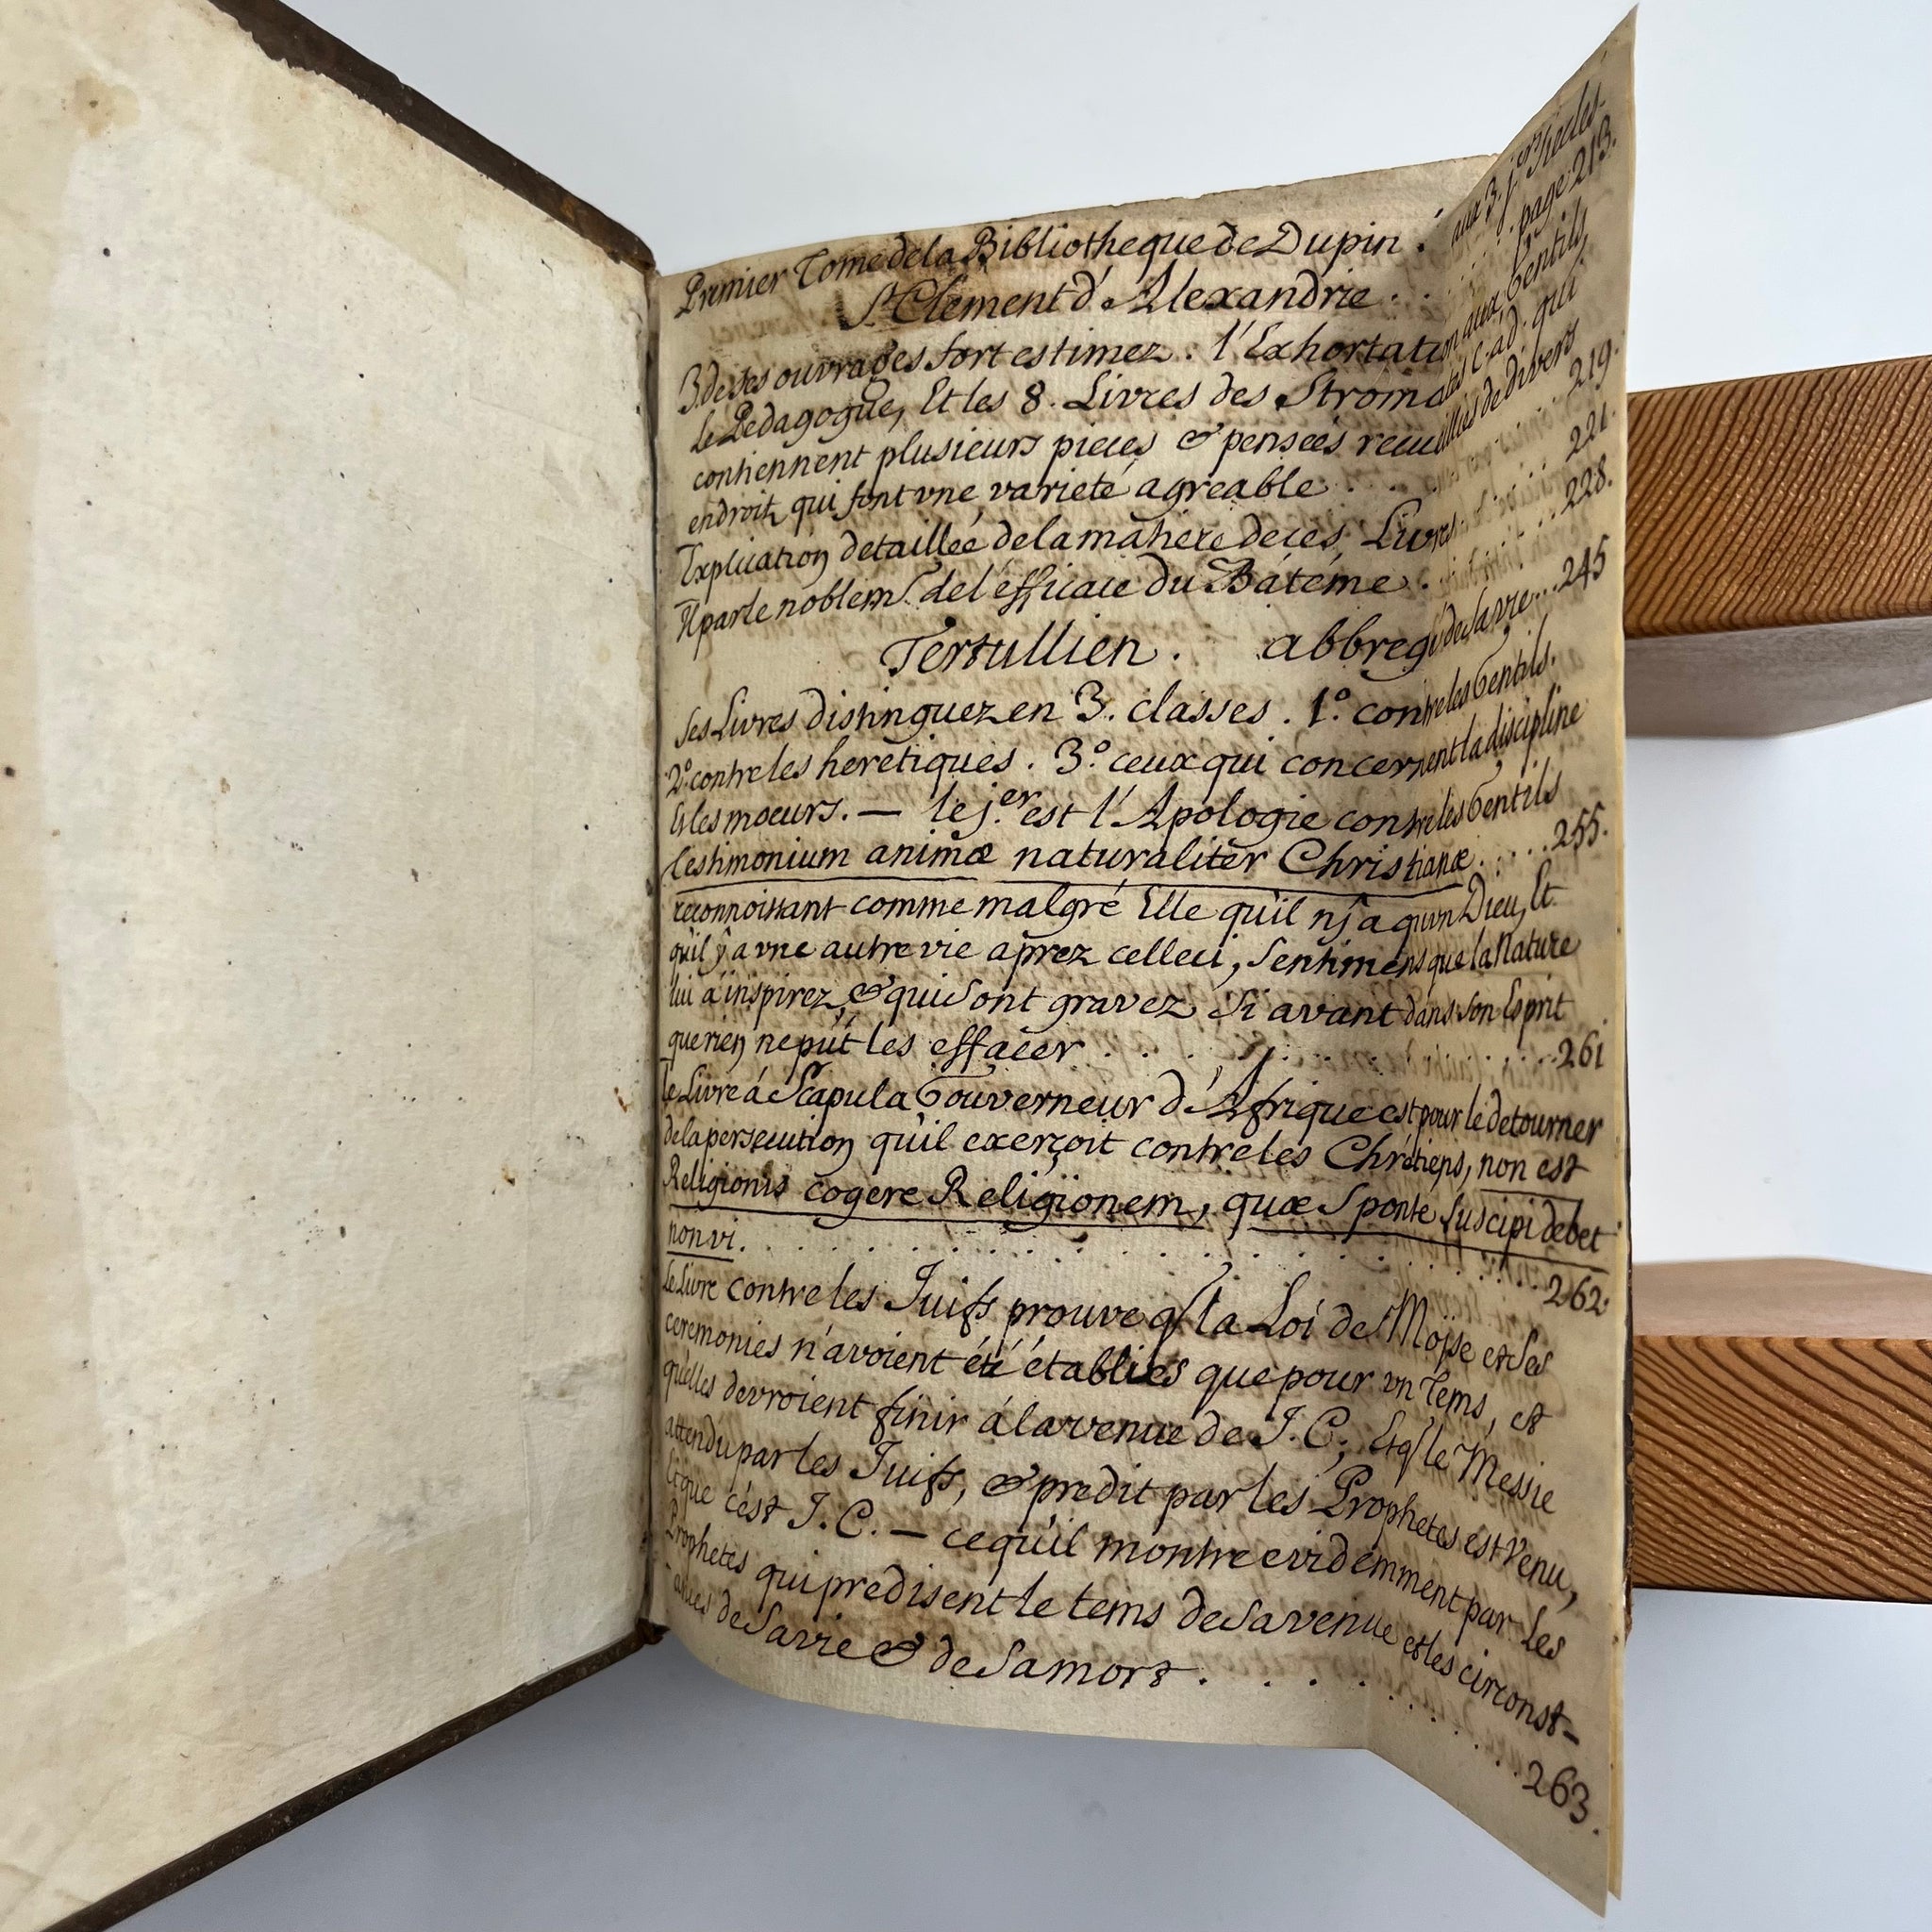 Premier Tome de la Bibliotheque de Dupin. aux 3. j.ers Siecles
St Clement d'Alexandrie . . . . page 213.
3. de ses ouvrages fort estimez. l'Exhortation aux Gentils,
le Pedagogue, Et les 8. Livres des Stromates C. ad. qui
contiennent plusieurs pieces & pensées recueillies de divers
endroits qui font vne varieté agreable . . . . 219.
Explication detaillée de la matiere de ces Livres . . . 221.
Il parle noblemt. de l'efficace du Batéme . . . 228.
Tertullien. abbregé de sa vie . . . 245
Ses Livres distinguez en 3. classes. 1.° contre les Gentils.
2.° contre les heretiques. 3.° ceux qui concernent la discipline
Et les moeurs. — le j.er est l'Apologie contre les Gentils
testimonium animæ naturaliter Christianæ . . . . 255.
reconnoissant comme malgré Elle qu'il nÿ a qu'vn Dieu, Et
qu'il ÿ a vne autre vie aprez celleci, Sentimens que la Nature
lui a inspirez, & qui sont gravez Si avant dans son Esprit
que rien ne put les effacer . . . . . . 261
le Livre á Scapula Gouverneur d'Afrique est pour le detourner
de la persecution qu'il exerçoit contre les Chrétiens, non est
Religionis cogere Religionem, quæ Sponte Suscipi debet
non vi. . . . . . . . 262.
Le Livre contre les Juifs prouve q/ la Loi de Moïse et Ses
ceremonies n'avoient été établies que pour vn Tems, et
qu'elles devroient finir á la venue de J. C., Et q/ le Messie
attendu par les Juifs, & predit par les Prophetes est venu,
Et que c'est J. C. — ce qu'il montre evidemment par les
Prophetes qui predisent le tems de Sa venue et les circonst-
-ances de Sa vie & de Sa mort . . . . . . 263.